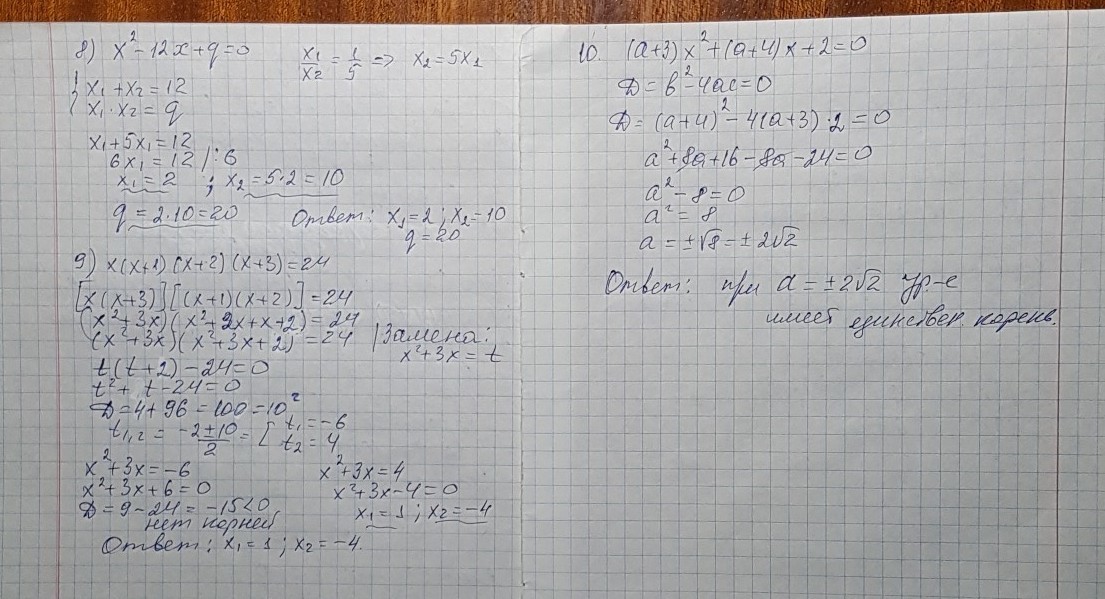 8) x² - 12x + q = 0
x₁/x₂ = 1/5 => x₂ = 5x₁
{ x₁ + x₂ = 12
x₁ · x₂ = q
x₁ + 5x₁ = 12
6x₁ = 12 /:6
x₁ = 2 ; x₂ = 5·2 = 10
q = 2·10 = 20
Ответ: x₁ = 2 ; x₂ = 10
q = 20
9) x(x+1)(x+2)(x+3) = 24
[x(x+3)][(x+1)(x+2)] = 24
(x²+3x)(x²+2x+x+2) = 24
(x²+3x)(x²+3x+2) = 24 | Замена:
x²+3x = t
t(t+2) - 24 = 0
t² + t - 24 = 0
D = 4 + 96 = 100 = 10²
t₁,₂ = (-2±10)/2 = [ t₁ = -6
t₂ = 4
x²+3x = -6
x²+3x+6 = 0
D = 9 - 24 = -15 < 0
нет корней
x²+3x = 4
x²+3x-4 = 0
x₁ = 1 ; x₂ = -4
Ответ: x₁ = 1 ; x₂ = -4.
10. (a+3)x² + (a+4)x + 2 = 0
D = b² - 4ac = 0
D = (a+4)² - 4(a+3)·2 = 0
a² + 8a + 16 - 8a - 24 = 0
a² - 8 = 0
a² = 8
a = ±√8 = ±2√2
Ответ: при a = ±2√2 ур-е
имеет единствен. корень.